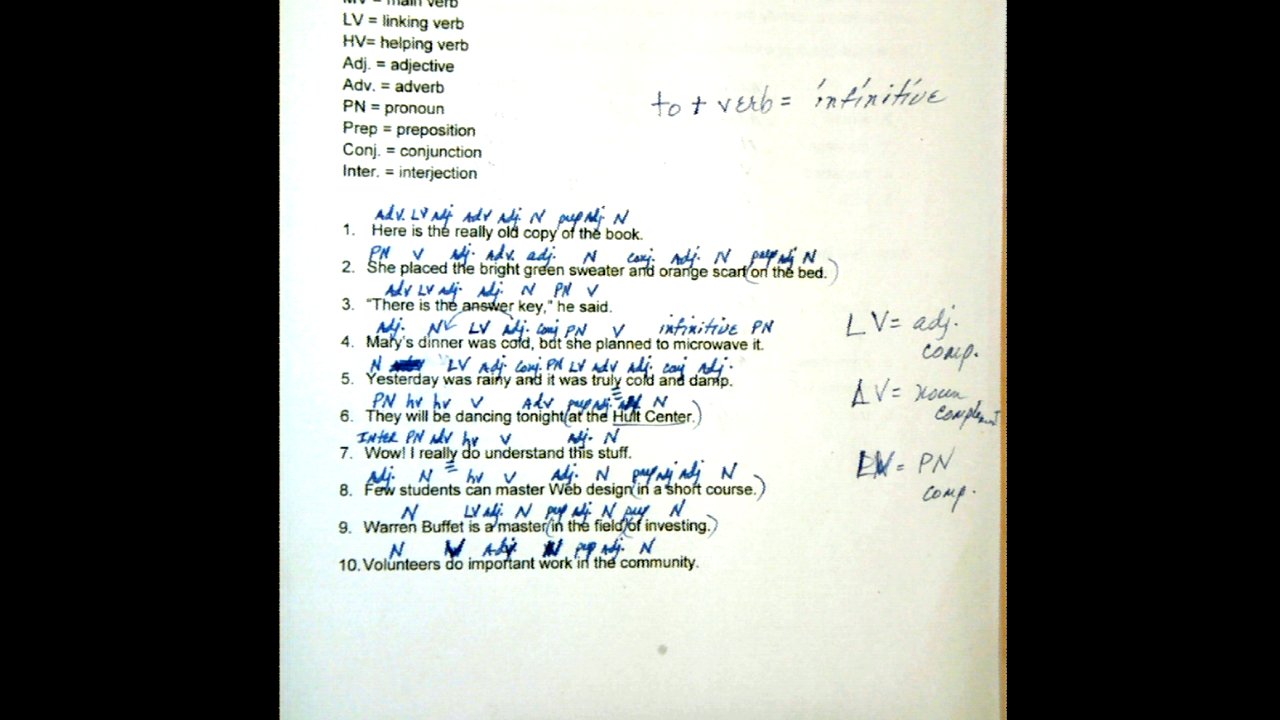 MV = main verb
LV = linking verb
HV= helping verb
Adj. = adjective
Adv. = adverb
to + verb = infinitive
PN = pronoun
Prep = preposition
Conj. = conjunction
Inter. = interjection
Adv. LV Adj. Adv Adj. N prep Adj. N
1. Here is the really old copy of the book.
PN V Adj. Adv. adj. N conj. Adj. N prep adj N
2. She placed the bright green sweater and orange scarf (on the bed.)
Adv LV Adj. Adj. N PN V
3. "There is the answer key," he said.
Adj. N LV adj. conj PN V infinitive PN
4. Mary's dinner was cold, but she planned to microwave it.
LV = adj. comp.
N LV Adj. conj. PN LV adv Adj. conj Adj.
5. Yesterday was rainy and it was truly cold and damp.
LV = noun complement
PN hv hv V Adv prep adj. N
6. They will be dancing tonight (at the Hult Center.)
Inter PN adv hv V adj. N
7. Wow! I really do understand this stuff.
LV = PN comp.
Adj. N hv V Adj. N prep adj adj N
8. Few students can master Web design (in a short course.)
N LV adj. N prep adj. N prep N
9. Warren Buffet is a master (in the field) (of investing.)
N V Adj. N prep adj. N
10. Volunteers do important work in the community.